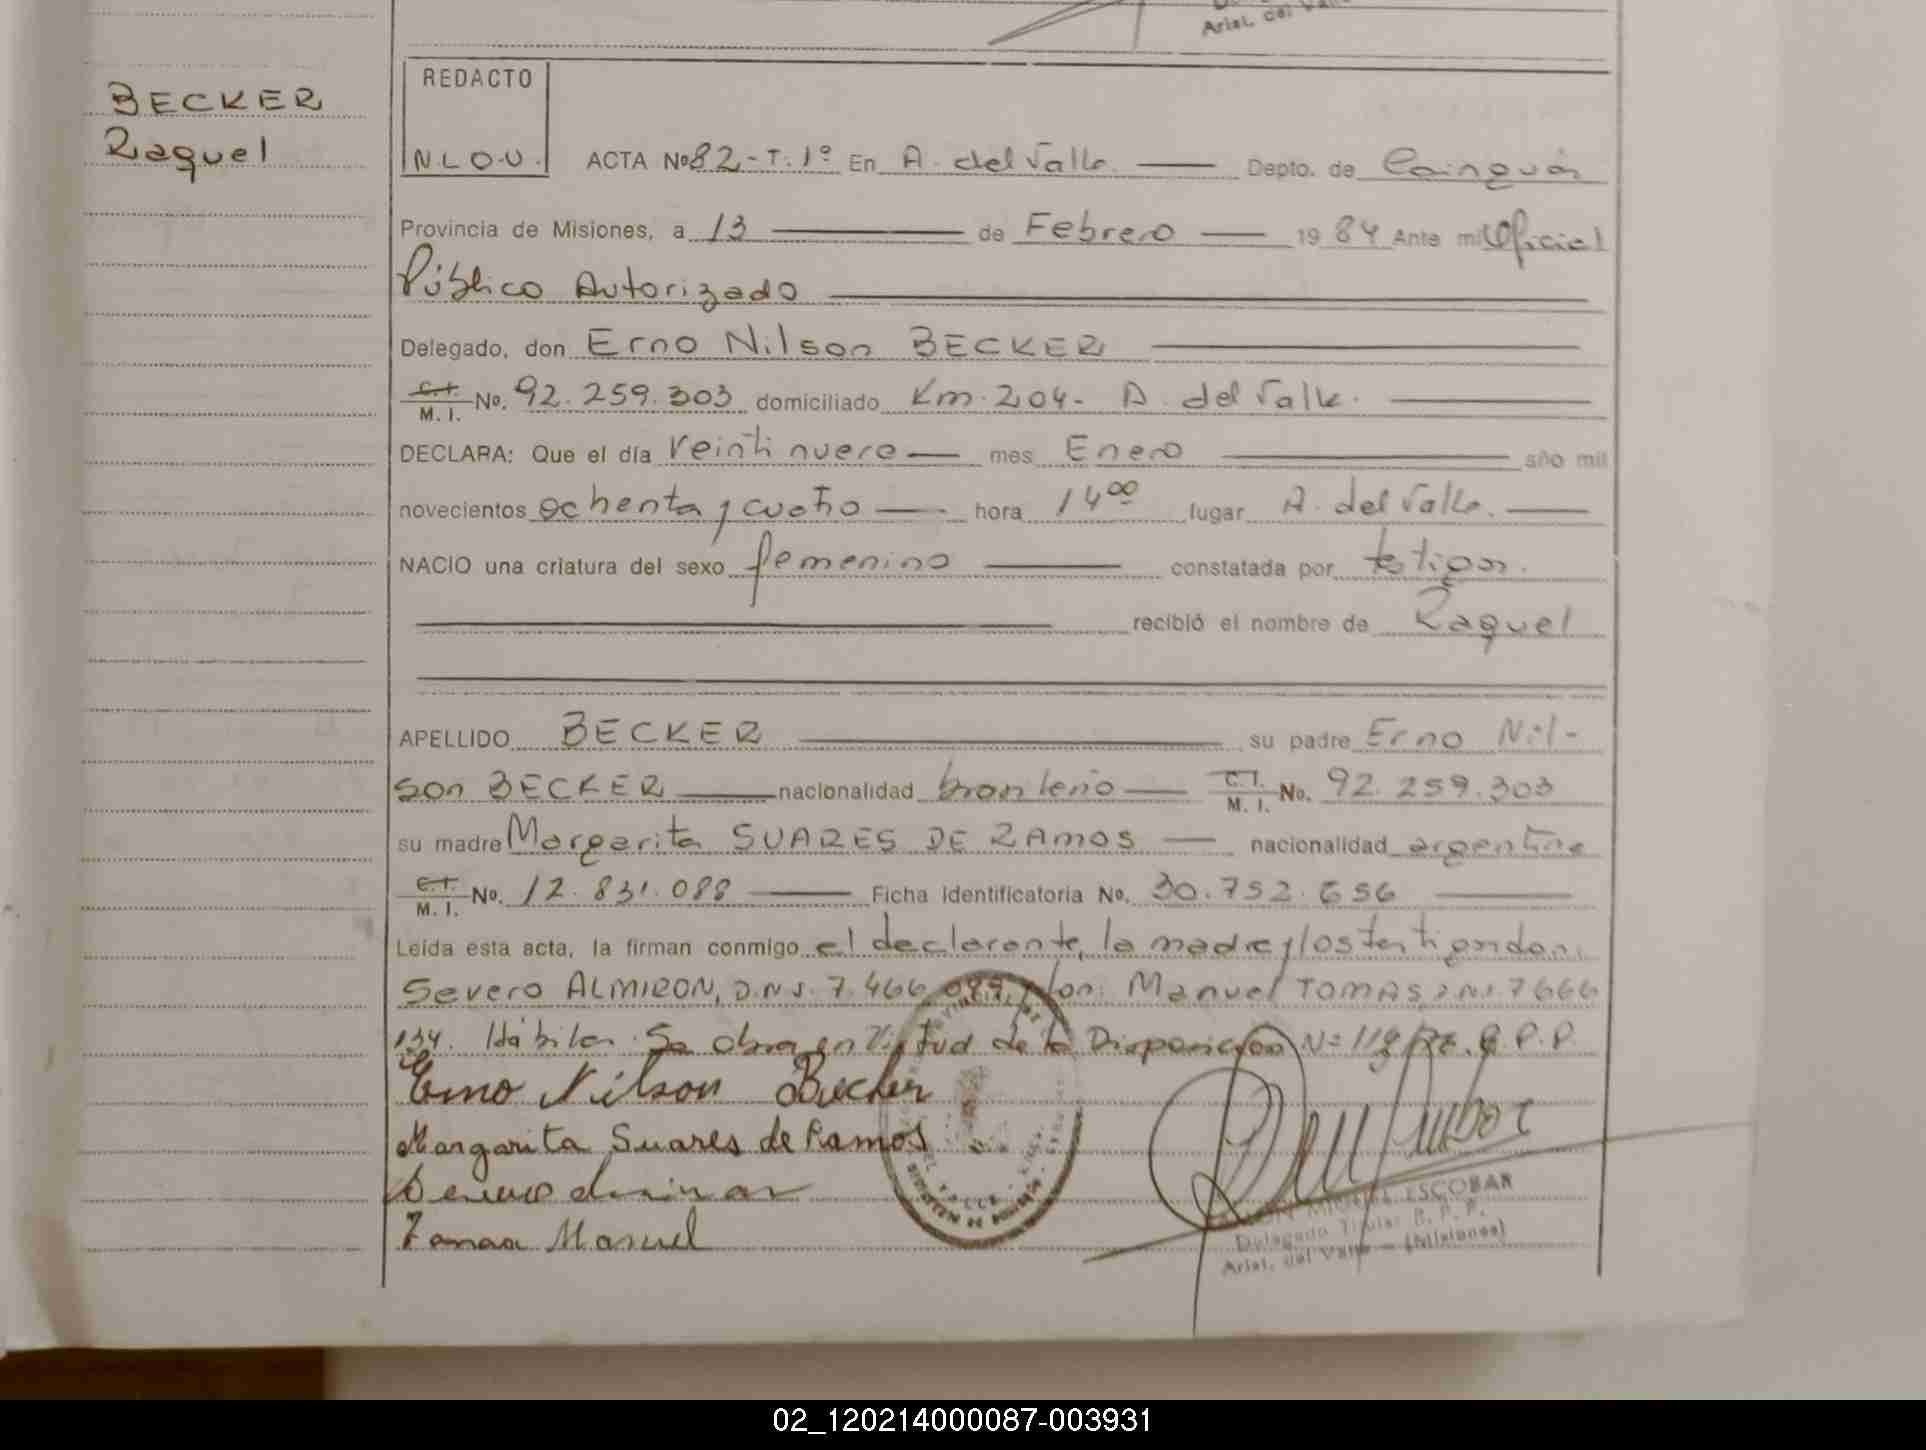 Ariel. del Valle
BECKER
Raquel
REDACTO
N.L.O.U.
ACTA Nº 82-T.1º En A. del Valle. Depto. de Cainguás
Provincia de Misiones, a 13 de Febrero 1984 Ante mi Oficial
Público Autorizado
Delegado, don Erno Nilson BECKER
C.I. M.I. Nº. 92.259.303 domiciliado Km. 204- A. del Valle.
DECLARA: Que el día veintinueve mes Enero año mil
novecientos ochenta y cuatro hora 14⁰⁰ lugar A. del Valle.
NACIO una criatura del sexo femenino constatada por testigos.
recibió el nombre de Raquel
APELLIDO BECKER su padre Erno Nil-
son BECKER nacionalidad brasileño C.I. M.I. No. 92.259.303
su madre Margarita SUARES DE RAMOS nacionalidad argentina
C.I. M.I. Nº. 12.831.088 Ficha identificatoria No. 30.752.656
Leída esta acta, la firman conmigo el declarante, la madre y los testigos don:
Severo ALMIRON, D.N.I. 7.466 y don: Manuel TOMAS D.N.I. 7666
134. Hábiles. Se obra en Virtud de la Disposición Nº R.P.P.
Erno Nilson Becker
Margarita Suares de Ramos
Manuel
MIGUEL ESCOBAR
Delegado Titular R.P.P.
Ariel. del Valle - (Misiones)
02_120214000087-003931